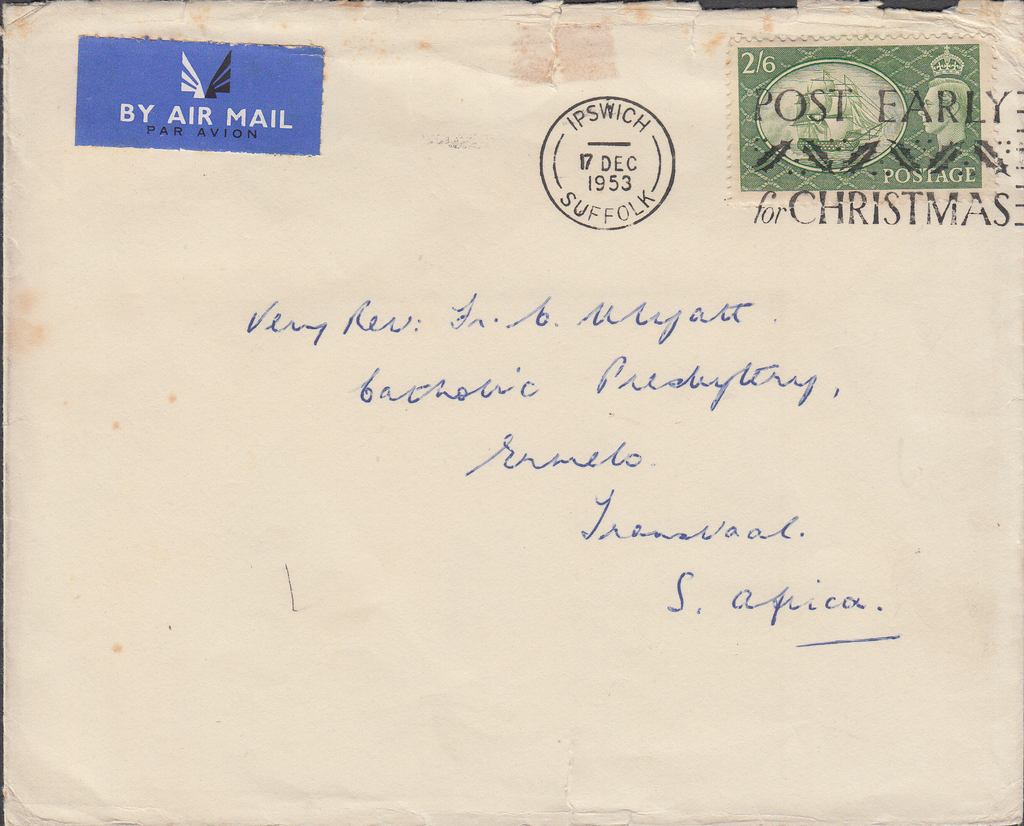 BY AIR MAIL
PAR AVION
IPSWICH
17 DEC
1953
SUFFOLK
2/6
POSTAGE
POST EARLY
for CHRISTMAS
Very Rev: Fr. C. Whyatt.
Catholic Presbytery,
Ermelo.
Transvaal.
S. Africa.